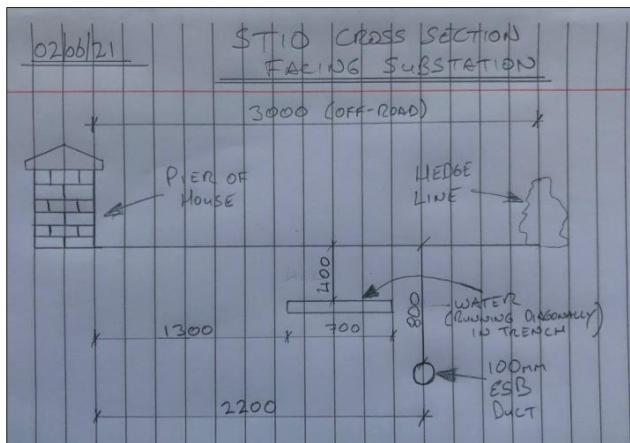 02/06/21
ST10 CROSS SECTION
FACING SUBSTATION
3000 (OFF-ROAD)
PIER OF
HOUSE
HEDGE
LINE
400
WATER
(RUNNING DIAGONALLY
IN TRENCH)
800
1300
700
100mm
ESB
DUCT
2200